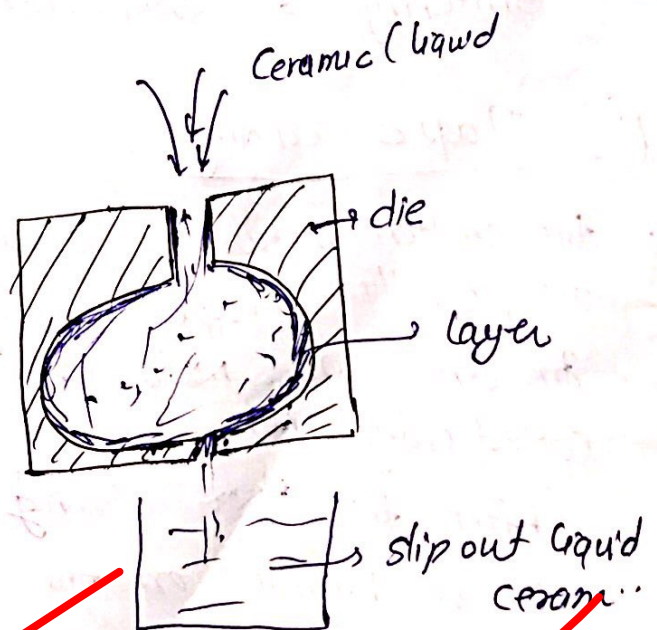 Ceramic (liquid
die
layer
slip out liquid
ceram..